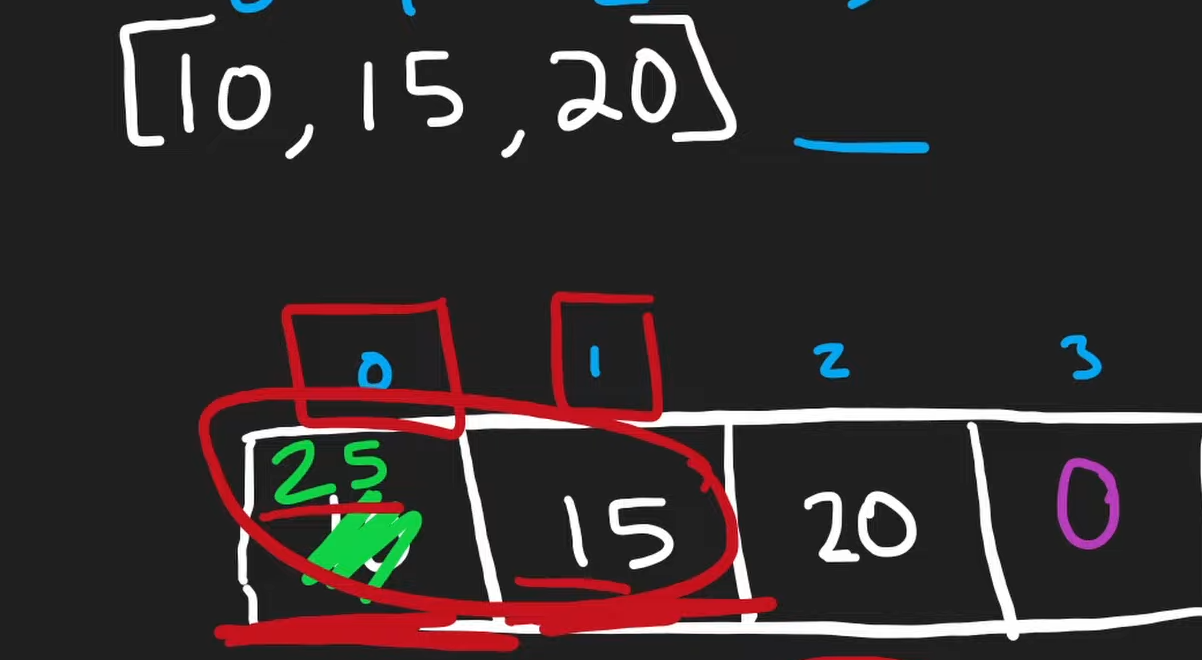 [10, 15, 20]
0 1 2 3
25
15 20 0